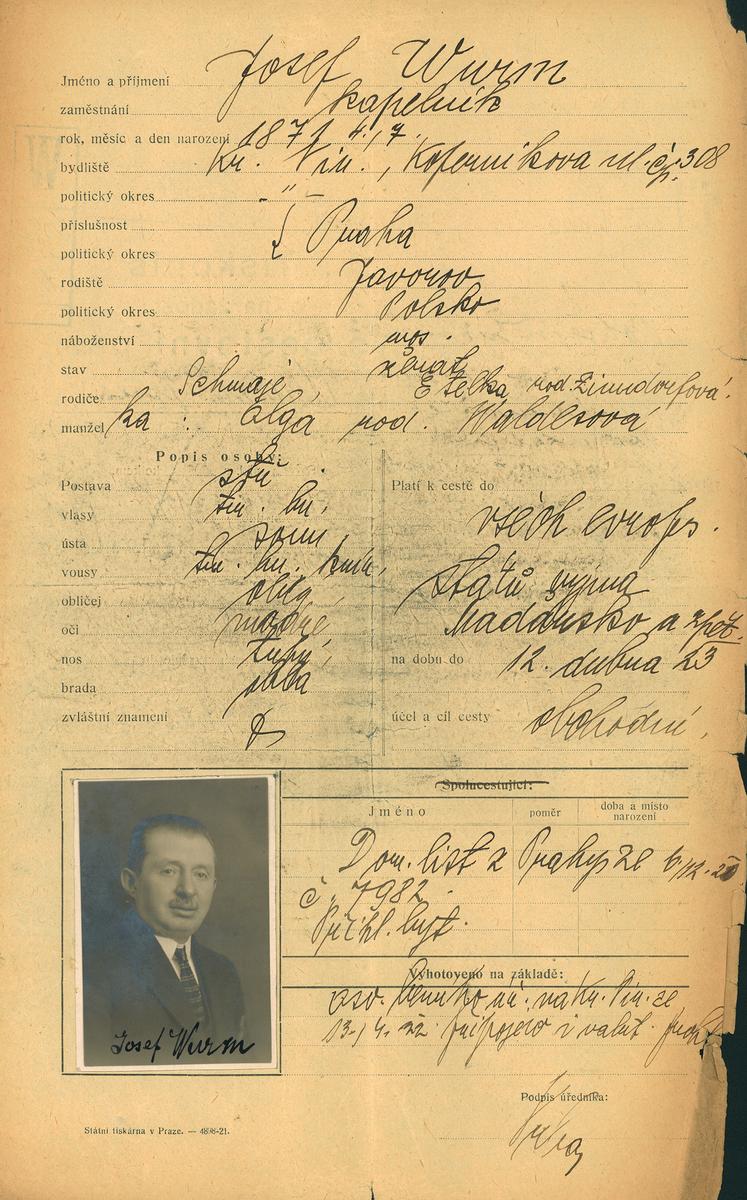 Jméno a příjmení Josef Wurm
zaměstnání kapelník
rok, měsíc a den narození 1871 4./7.
bydliště Kr. Vin., Koperníkova ul. čp. 308
politický okres - " -
příslušnost
politický okres } Praha
rodiště Javorov
politický okres Polsko
náboženství mos.
stav ženat
rodiče Schmaje, Etelka rod. Zinndorfová.
manžel ka: Elga rod. Waldesová
Popis osoby:
Postava stř.
vlasy tm. hn.
ústa soum.
vousy tm. hn. knír,
obličej oblý
oči modré
nos tupý,
brada oblá
zvláštní znamení
Platí k cestě do
všech evrops.
států vyjma
Maďarsko a zpět.
na dobu do 12. dubna 23
účel a cíl cesty obchodní.
Spolucestující:
Jméno poměr doba a místo narození
Dom. list z Prahy ze 6/12. 20
č. 7982.
Přihl. byt.
Vyhotoveno na základě:
na Kr. Vin. ze
13./4. 22 připojeno i
Josef Wurm
Podpis úředníka:
Státní tiskárna v Praze. — 4898-21.